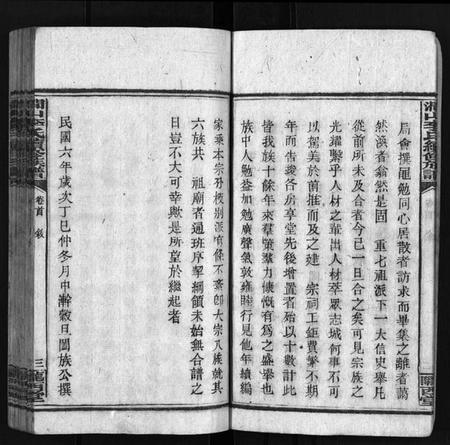 局會撰僶勉同心居散者訪求而畢集之離者萬
然渙者翕然是固 重七祖派下一大信史舉凡
從前所未及合者今已一旦合之矣可見宗族之
光耀繫乎人材之輩出人材萃厥志城何事不可
以駕美於前推而及之建 宗祠工鉅費繁不期
年而告竣各房享堂先後增置者殆以十數計此
皆我族十餘年來羣策羣力慷慨有為之盛舉也
族中人勉益加勉廣聲氣敦雍睦行見他年續編
家乘本宗分枝別派有條不紊郎大宗八族就其
六族共 祖廟者通班序挈綱領未始無合譜之
日豈不大可幸歟是所望於繼起者
民國六年歲次丁巳仲冬月中澣穀旦闔族公撰
卷首 敘
三